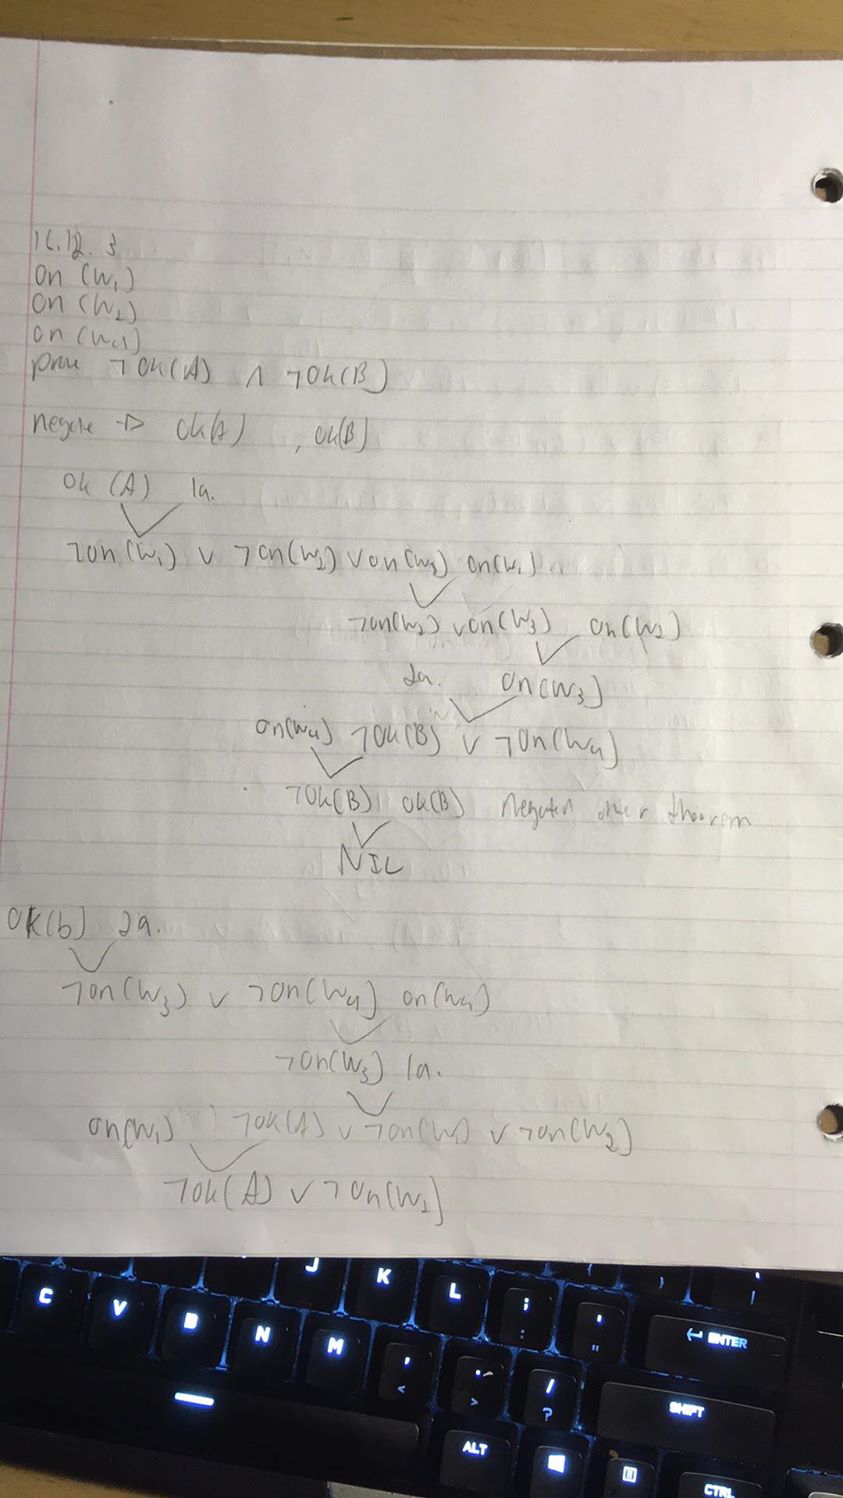 16.12.3
on (W₁)
on (W₂)
on (W₄)
prove ¬OK(A) ∧ ¬OK(B)
negate → OK(A) , OK(B)
OK (A) 1a.
¬on(W₁) ∨ ¬on(W₂) ∨ on(W₃) on(W₁)
¬on(W₂) ∨ on(W₃) on(W₂)
2a. on(W₃)
on(W₄) ¬OK(B) ∨ ¬on(W₄)
¬OK(B) OK(B) theorem
NIL
OK(b) 2a.
¬on(W₃) ∨ ¬on(W₄) on(W₄)
¬on(W₃) 1a.
on(W₁) ¬OK(A) ∨ ¬on(W₁) ∨ ¬on(W₂)
¬OK(A) ∨ ¬on(W₂)
J K L ;
:
C V B N M , < . > / ? ' " ENTER
SHIFT
ALT CTRL